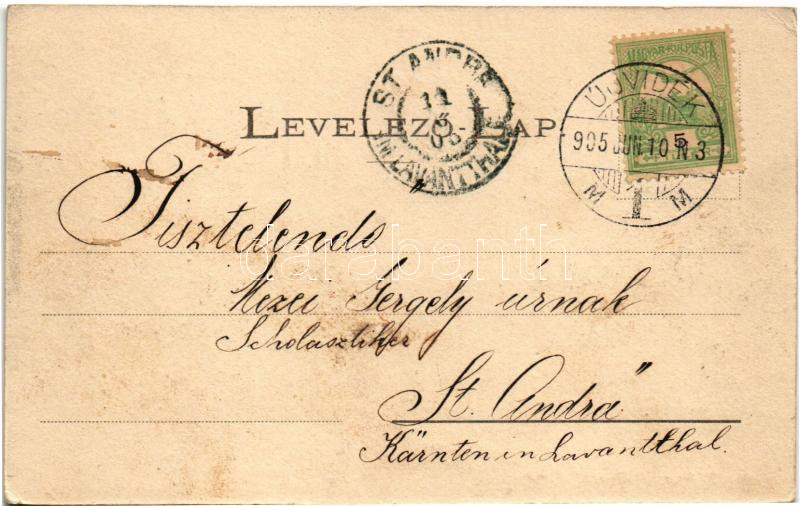 MAGYAR KIR. POSTA
5
ÚJVIDÉK
905 JUN 10 N 3
M 1 M
ST. ANDRÄ
11
6
05
IM LAVANTTHALE
LEVELEZŐ LAP
Tisztelendő
Mezei Gergely úrnak
Scholasztiker
St. Andrä
Kärnten in Lavantthal.
darabanth